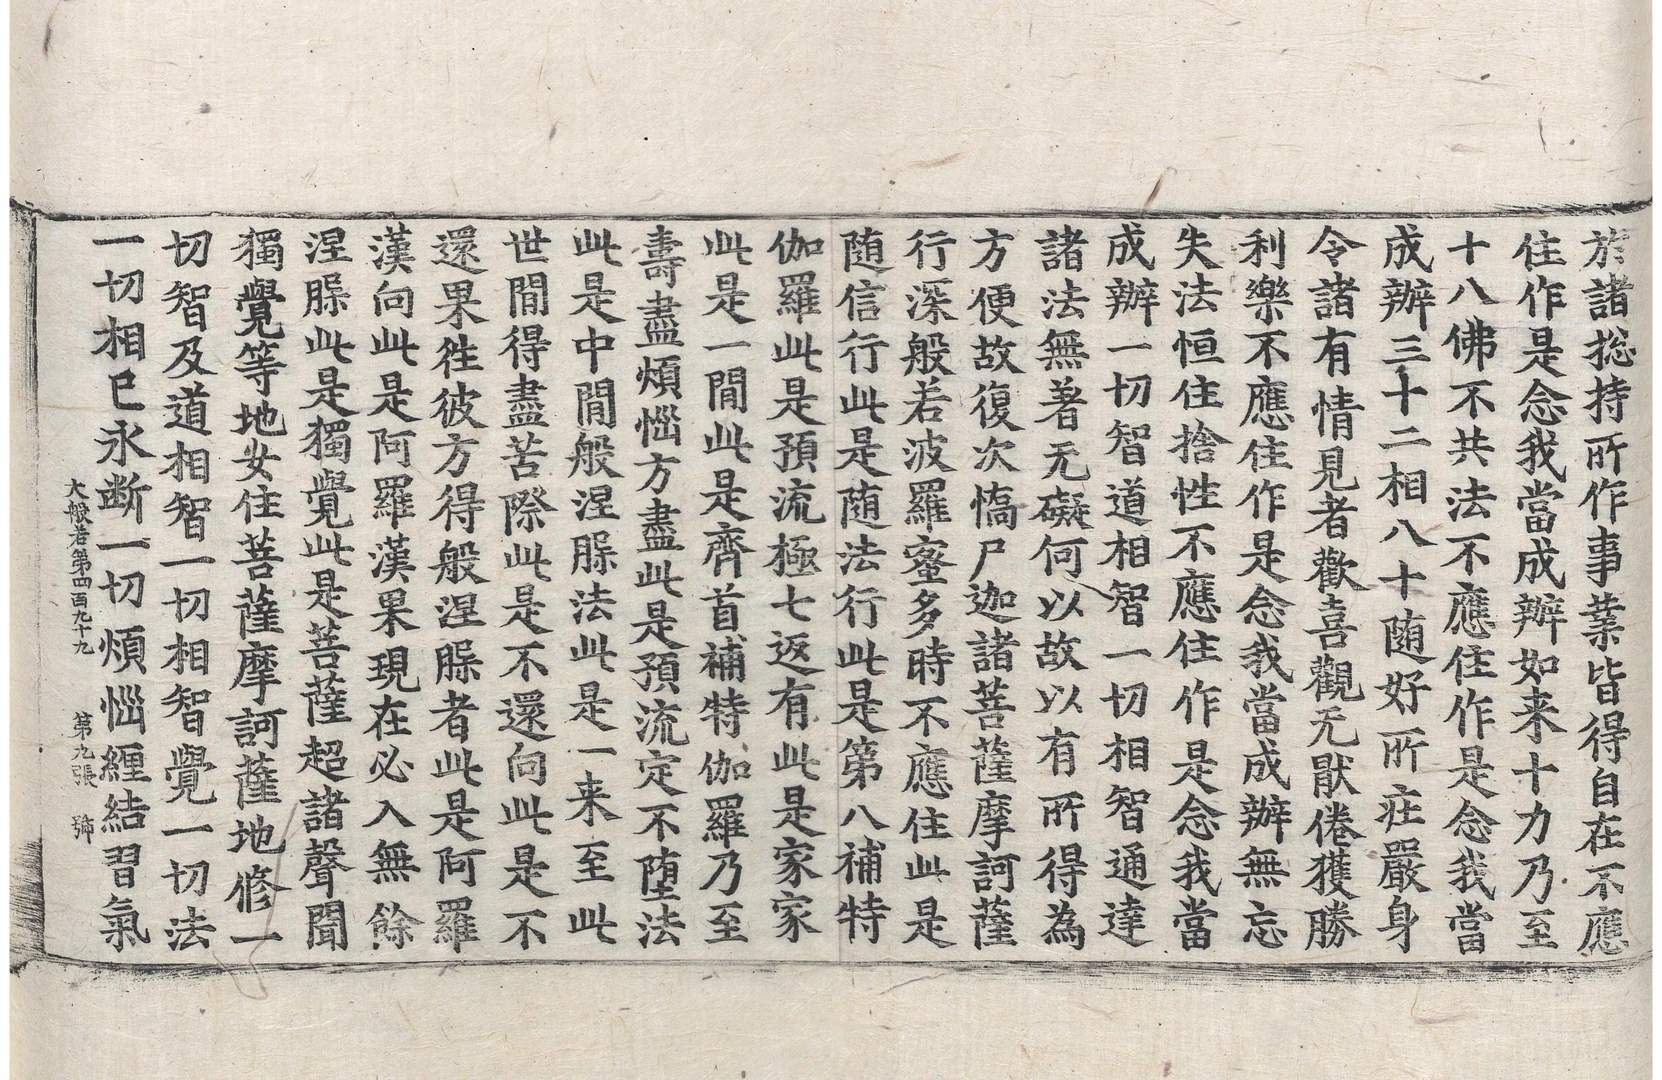 於諸㧾持所作事業皆得自在不應
住作是念我當成辦如来十力乃至
十八佛不共法不應住作是念我當
成辦三十二相八十随好所莊嚴身
令諸有情見者歡喜觀无猒倦獲勝
利樂不應住作是念我當成辦無忘
失法恒住捨性不應住作是念我當
成辦一切智道相智一切相智通達
諸法無著无礙何以故以有所得為
方便故復次憍尸迦諸菩薩摩訶薩
行深般若波羅蜜多時不應住此是
随信行此是随法行此是第八補特
伽羅此是預流極七返有此是家家
此是一閒此是齊首補特伽羅乃至
壽盡煩惱方盡此是預流定不墮法
此是中閒般涅脲法此是一来至此
世閒得盡苦際此是不還向此是不
還果徃彼方得般涅脲者此是阿羅
漢向此是阿羅漢果現在必入無餘
涅脲此是獨覺此是菩薩超諸聲聞
獨覺等地女住菩薩摩訶薩地修一
切智及道相智一切相智覺一切法
一切相已永断一切煩惱纏結習氣
大般若第四百九十九 第九張 㱐